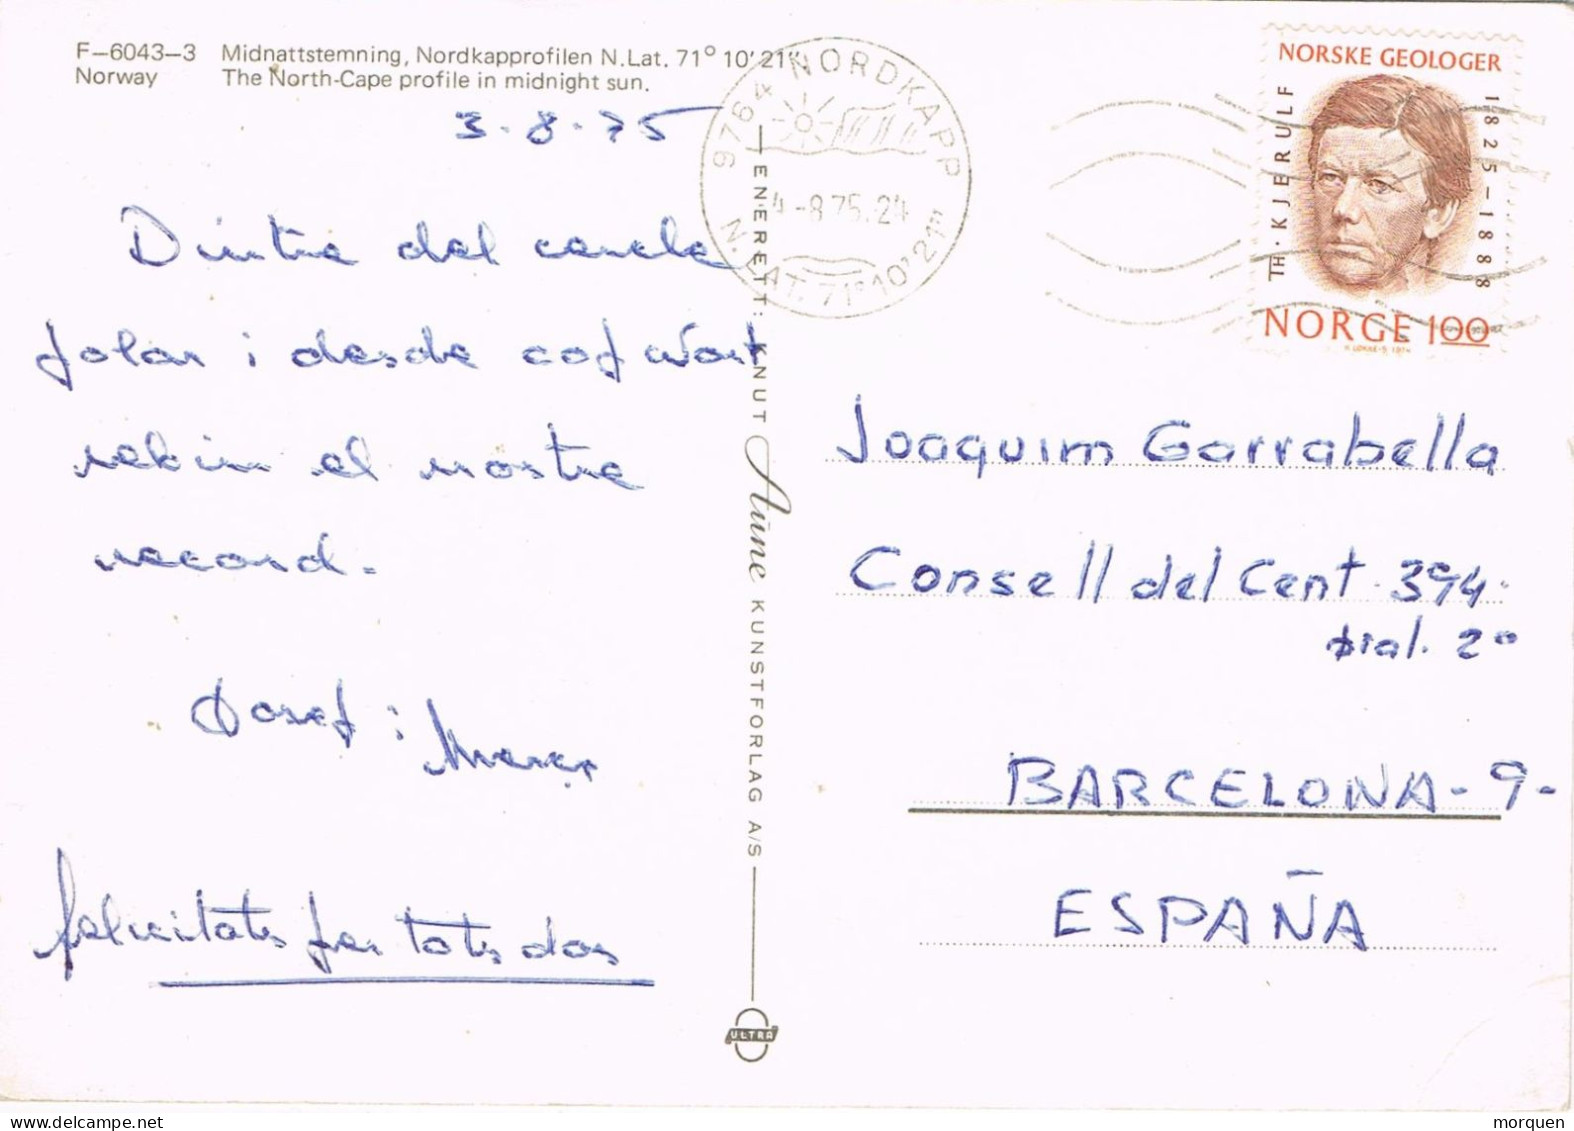 F–6043–3 Midnattstemning, Nordkapprofilen N.Lat. 71° 10' 21"
Norway The North-Cape profile in midnight sun.
3-8-75
Dintre del cercle
polar i desde cap Nort
rebin el nostre
record.
Josep i
felicitats per tots dos
ENERETT: KNUT Aune KUNSTFORLAG A/S
ULTRA
9764 NORDKAPP
4-8 75.24
N. LAT. 71° 10' 21"
NORSKE GEOLOGER
TH · KJERULF
1825–1888
NORGE 100
Joaquim Garrabella
Consell del Cent 394
pral. 2º
BARCELONA-9-
ESPAÑA
delcampe.net
morquen